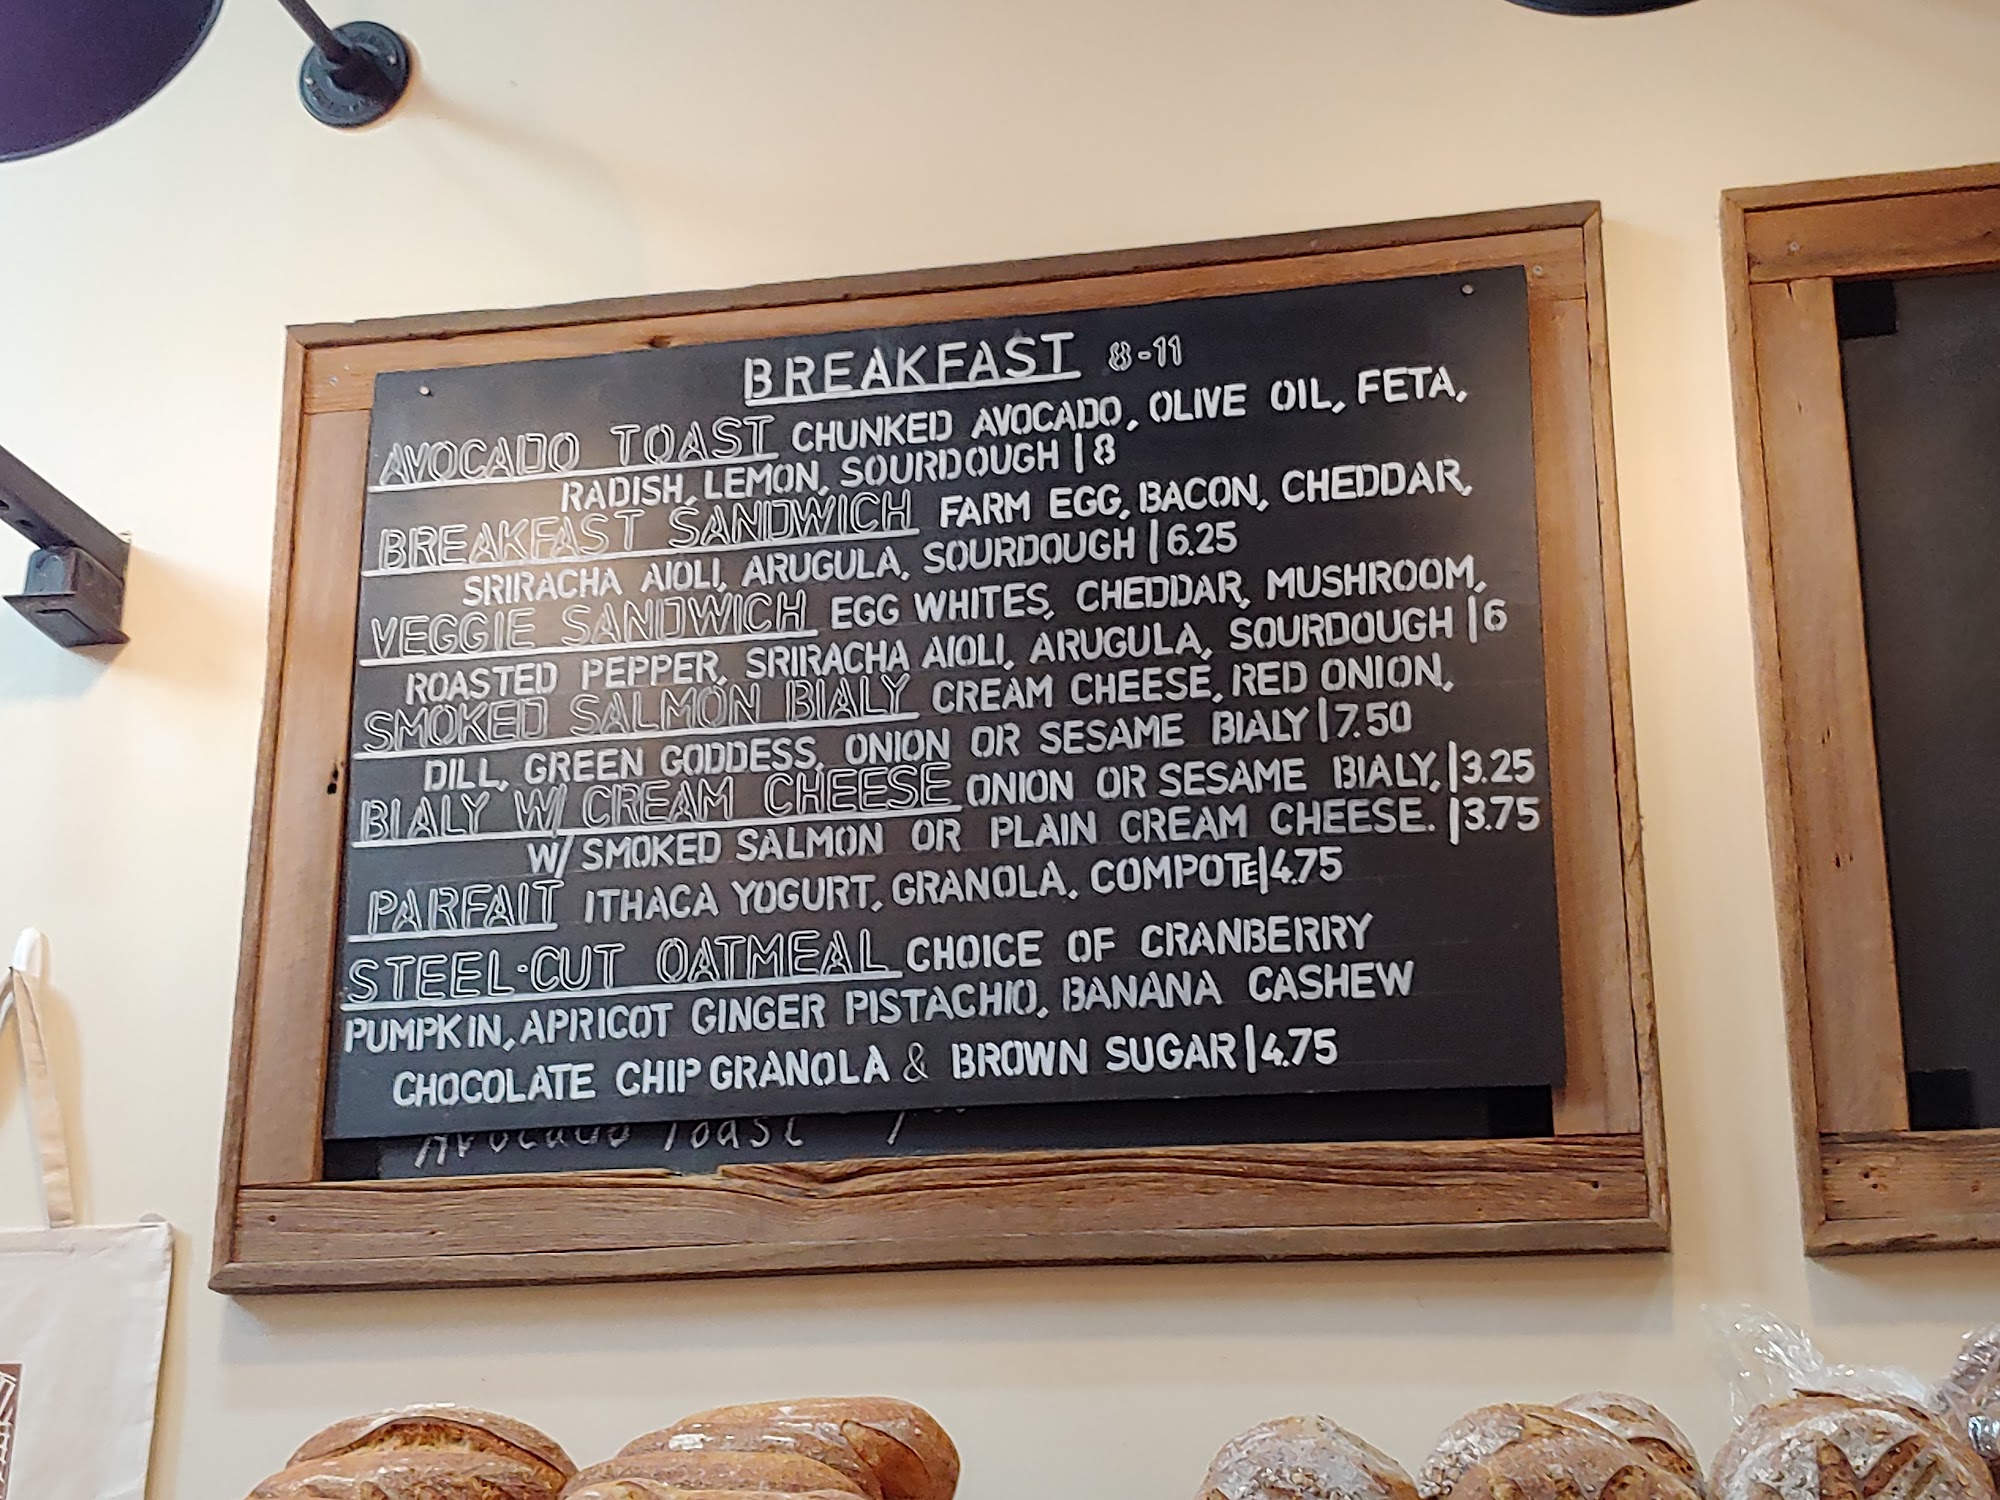 BREAKFAST 8-11
AVOCADO TOAST CHUNKED AVOCADO, OLIVE OIL, FETA,
RADISH, LEMON, SOURDOUGH | 8
BREAKFAST SANDWICH FARM EGG, BACON, CHEDDAR,
SRIRACHA AIOLI, ARUGULA, SOURDOUGH | 6.25
VEGGIE SANDWICH EGG WHITES, CHEDDAR, MUSHROOM,
ROASTED PEPPER, SRIRACHA AIOLI, ARUGULA, SOURDOUGH | 6
SMOKED SALMON BIALY CREAM CHEESE, RED ONION,
DILL, GREEN GODDESS, ONION OR SESAME BIALY | 7.50
BIALY W/ CREAM CHEESE ONION OR SESAME BIALY, | 3.25
W/ SMOKED SALMON OR PLAIN CREAM CHEESE. | 3.75
PARFAIT ITHACA YOGURT, GRANOLA, COMPOTE | 4.75
STEEL-CUT OATMEAL CHOICE OF CRANBERRY
PUMPKIN, APRICOT GINGER PISTACHIO, BANANA CASHEW
CHOCOLATE CHIP GRANOLA & BROWN SUGAR | 4.75
Avocado Toast